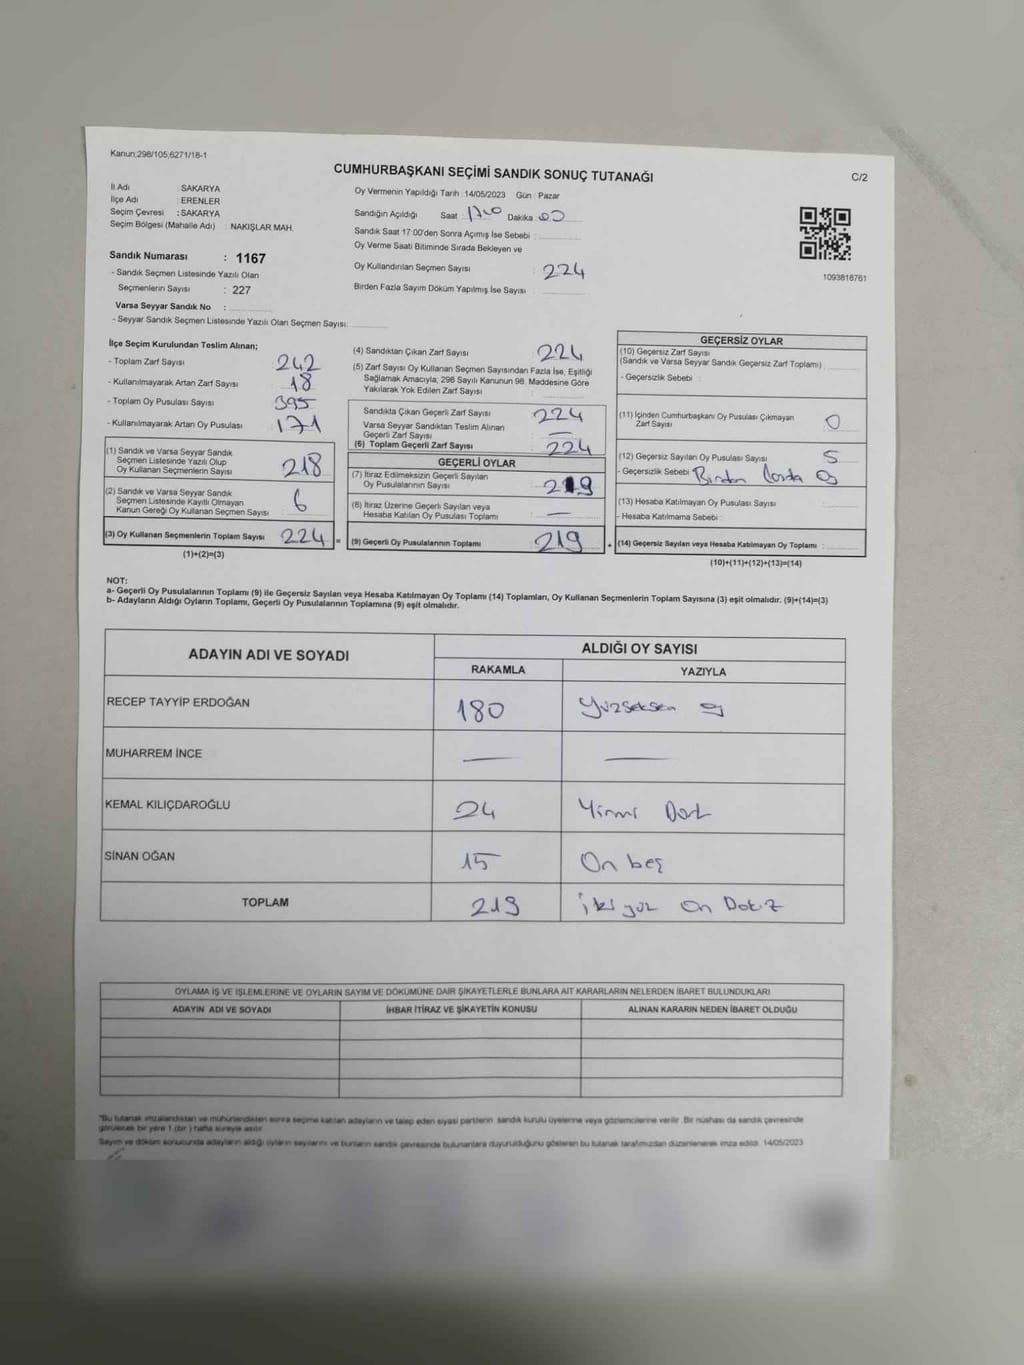 Kanun;298/105;6271/18-1
CUMHURBAŞKANI SEÇİMİ SANDIK SONUÇ TUTANAĞI
C/2
İl Adı SAKARYA
İlçe Adı : ERENLER
Seçim Çevresi : SAKARYA
Seçim Bölgesi (Mahalle Adı) : NAKIŞLAR MAH.
Oy Vermenin Yapıldığı Tarih :14/05/2023 Gün : Pazar
Sandığın Açıldığı Saat : 17.00 Dakika 00
Sandık Saat 17:00'den Sonra Açımış İse Sebebi :
Oy Verme Saati Bitiminde Sırada Bekleyen ve
Oy Kullandırılan Seçmen Sayısı : 224
Birden Fazla Sayım Döküm Yapılmış İse Sayısı :
1093818761
Sandık Numarası : 1167
- Sandık Seçmen Listesinde Yazılı Olan
Seçmenlerin Sayısı : 227
Varsa Seyyar Sandık No :
- Seyyar Sandık Seçmen Listesinde Yazılı Olan Seçmen Sayısı:
İlçe Seçim Kurulundan Teslim Alınan;
- Toplam Zarf Sayısı : 242
- Kullanılmayarak Artan Zarf Sayısı : 18
- Toplam Oy Pusulası Sayısı : 395
- Kullanılmayarak Artan Oy Pusulası : 171
(1) Sandık ve Varsa Seyyar Sandık
Seçmen Listesinde Yazılı Olup
Oy Kullanan Seçmenlerin Sayısı : 218
(2) Sandık ve Varsa Seyyar Sandık
Seçmen Listesinde Kayıtlı Olmayan
Kanun Gereği Oy Kullanan Seçmen Sayısı : 6
(3) Oy Kullanan Seçmenlerin Toplam Sayısı : 224 =
(1)+(2)=(3)
(4) Sandıktan Çıkan Zarf Sayısı : 224
(5) Zarf Sayısı Oy Kullanan Seçmen Sayısından Fazla İse, Eşitliği
Sağlamak Amacıyla; 298 Sayılı Kanunun 98. Maddesine Göre
Yakılarak Yok Edilen Zarf Sayısı :
Sandıkta Çıkan Geçerli Zarf Sayısı : 224
Varsa Seyyar Sandıktan Teslim Alınan
Geçerli Zarf Sayısı : —
(6) Toplam Geçerli Zarf Sayısı : 224
GEÇERLİ OYLAR
(7) İtiraz Edilmeksizin Geçerli Sayılan
Oy Pusulalarının Sayısı : 219
(8) İtiraz Üzerine Geçerli Sayılan veya
Hesaba Katılan Oy Pusulası Toplamı : —
(9) Geçerli Oy Pusulalarının Toplamı : 219 +
GEÇERSİZ OYLAR
(10) Geçersiz Zarf Sayısı
(Sandık ve Varsa Seyyar Sandık Geçersiz Zarf Toplamı) :
- Geçersizlik Sebebi :
(11) İçinden Cumhurbaşkanı Oy Pusulası Çıkmayan
Zarf Sayısı : 0
(12) Geçersiz Sayılan Oy Pusulası Sayısı : 5
- Geçersizlik Sebebi : Birden oy
(13) Hesaba Katılmayan Oy Pusulası Sayısı :
- Hesaba Katılmama Sebebi :
(14) Geçersiz Sayılan veya Hesaba Katılmayan Oy Toplamı :
(10)+(11)+(12)+(13)=(14)
NOT:
a- Geçerli Oy Pusulalarının Toplamı (9) ile Geçersiz Sayılan veya Hesaba Katılmayan Oy Toplamı (14) Toplamları, Oy Kullanan Seçmenlerin Toplam Sayısına (3) eşit olmalıdır. (9)+(14)=(3)
b- Adayların Aldığı Oyların Toplamı, Geçerli Oy Pusulalarının Toplamına (9) eşit olmalıdır.
ADAYIN ADI VE SOYADI
ALDIĞI OY SAYISI
RAKAMLA YAZIYLA
RECEP TAYYİP ERDOĞAN 180 Yüzseksen oy
MUHARREM İNCE — —
KEMAL KILIÇDAROĞLU 24 Yirmi Dört
SİNAN OĞAN 15 On beş
TOPLAM 219 İki yüz On Dokuz
OYLAMA İŞ VE İŞLEMLERİNE VE OYLARIN SAYIM VE DÖKÜMÜNE DAİR ŞİKAYETLERLE BUNLARA AİT KARARLARIN NELERDEN İBARET BULUNDUKLARI
ADAYIN ADI VE SOYADI İHBAR İTİRAZ VE ŞİKAYETİN KONUSU ALINAN KARARIN NEDEN İBARET OLDUĞU
*Bu tutanak imzalandıktan ve mühürlendikten sonra seçime katılan adayların ve talep eden siyasi partilerin sandık kurulu üyelerine veya gözlemcilerine verilir. Bir nüshası da sandık çevresinde
görülecek bir yere 1 (bir) hafta süreyle asılır.
Sayım ve döküm sonucunda adayların aldığı oyların sayılarını ve bunların sandık çevresinde bulunanlara duyurulduğunu gösteren bu tutanak tarafımızdan düzenlenerek imza edildi. 14/05/2023